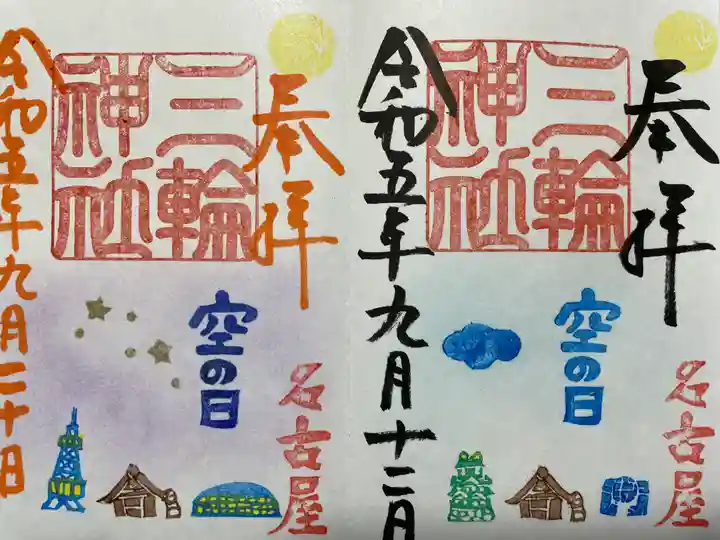 奉拝
三輪
神社
空の日
名古屋
令和五年九月十二日
奉拝
三輪
神社
空の日
名古屋
令和五年九月二十日